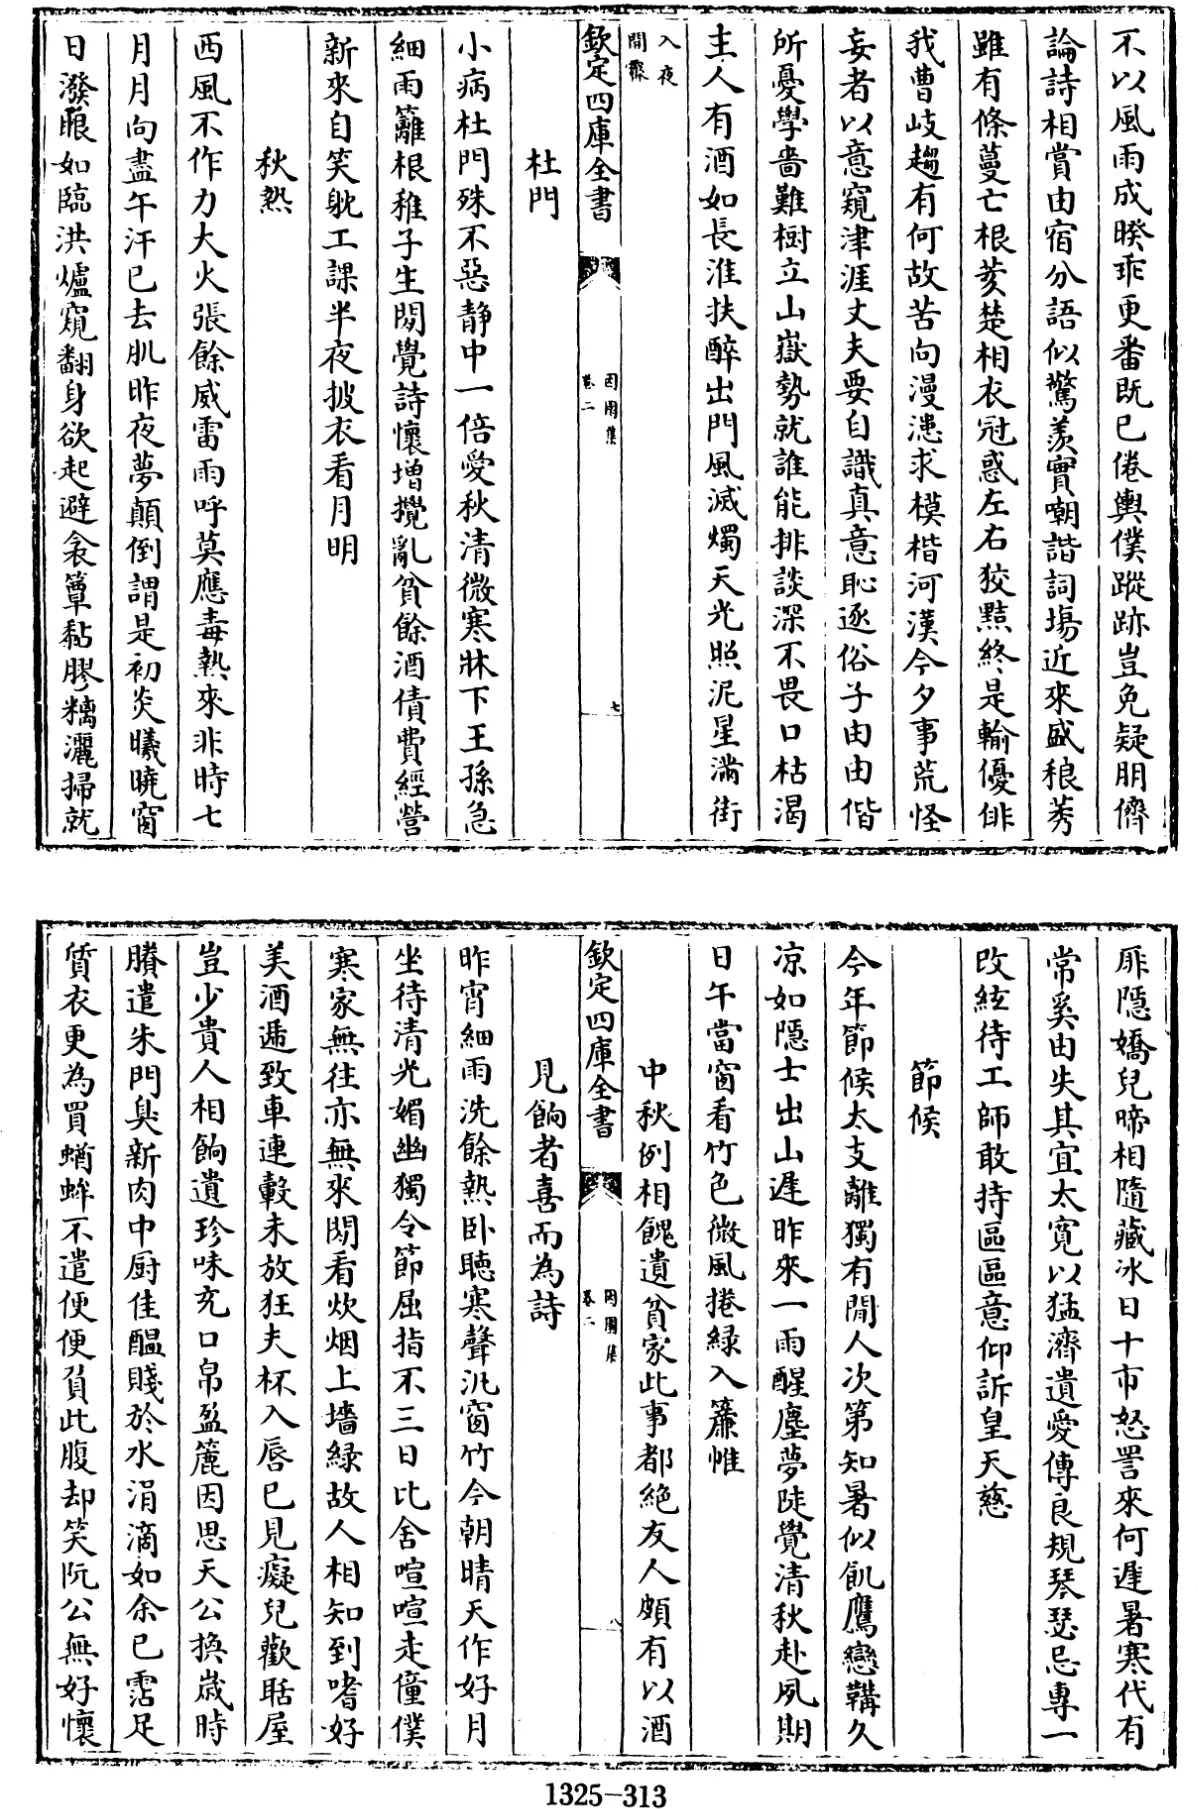 不以風雨成暌乖更番既已倦輿僕蹤跡豈免疑朋儕
論詩相賞由宿分語似驚羨實嘲諧詞場近來盛稂莠
雖有條蔓亡根荄楚相衣冠惑左右狡黠終是輸優俳
我曹岐趨有何故苦向漫漶求模楷河漢今夕事荒怪
妄者以意窺津涯丈夫要自識真意恥逐俗子由由偕
所憂學啬難樹立山嶽勢就誰能排談深不畏口枯渴
主人有酒如長淮扶醉出門風滅燭天光照泥星滿街
入夜
開霽
欽定四庫全書
因園集
卷二
七
杜門
小病杜門殊不惡靜中一倍愛秋清微寒牀下王孫急
細雨籬根稚子生閱覺詩懷增攪亂貧餘酒債費經營
新來自笑躭工課半夜披衣看月明
秋熱
西風不作力大火張餘威雷雨呼莫應毒熱來非時七
月月向盡午汗已去肌昨夜夢顛倒謂是初炎曦曉窗
日潑眼如臨洪爐窺翻身欲起避衾簟黏膠䊜灑掃就
厞隱嬌兒啼相隨藏冰日十市怒詈來何遲暑寒代有
常奚由失其宜太寬以猛濟遺愛傳良規琴瑟忌專一
改絃待工師敢持區區意仰訴皇天慈
節候
今年節候太支離獨有閒人次第知暑似飢鷹戀韝久
凉如隱士出山遲昨來一雨醒塵夢陡覺清秋赴夙期
日午當窗看竹色微風捲綠入簾帷
中秋例相餽遺貧家此事都絕友人頗有以酒
欽定四庫全書
因園集
卷二
八
見餉者喜而為詩
昨宵細雨洗餘熱臥聽寒聲汎窗竹今朝晴天作好月
坐待清光媚幽獨令節屈指不三日比舍喧喧走僮僕
寒家無往亦無來閱看炊烟上墻緑故人相知到嗜好
美酒遞致車連轂未放狂夫杯入唇已見癡兒歡聒屋
豈少貴人相餉遺珍味充口帛盈簏因思天公換歲時
賸遣朱門臭新肉中厨佳醖賤於水涓滴如余已霑足
質衣更為買蝤蛑不遣便便負此腹却笑阮公無好懷
1325-313